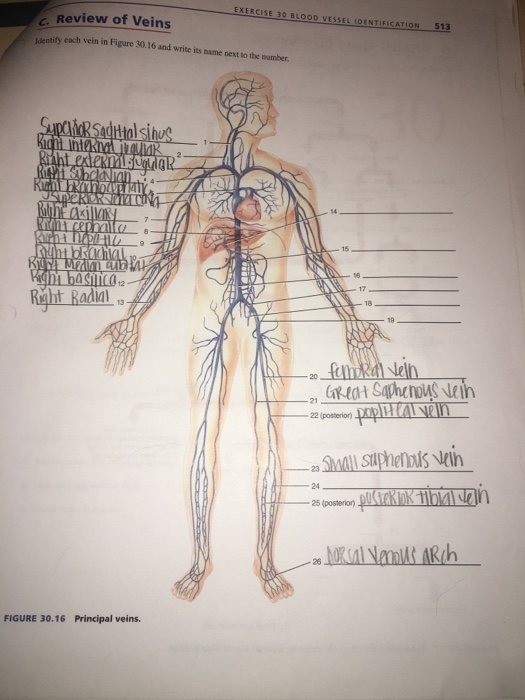 EXERCISE 30 BLOOD VESSEL IDENTIFICATION 513
C. Review of Veins
Identify each vein in Figure 30.16 and write its name next to the number.
Superior Sadittal sinus
1
Right internal jugular
Right external jugular 2
Right
4
Right
Right axillary 7
Right cephalic 8
Right hepatic 9
Right brachial 10
Right Median
Right basilica 12
Right Radial 13
14
15
16
17
18
19
20 femoral vein
21 Great Saphenous vein
22 (posterior) popliteal vein
23 Small saphenous vein
24
25 (posterior) posterior tibial vein
26 Dorsal Venous ARch
FIGURE 30.16 Principal veins.